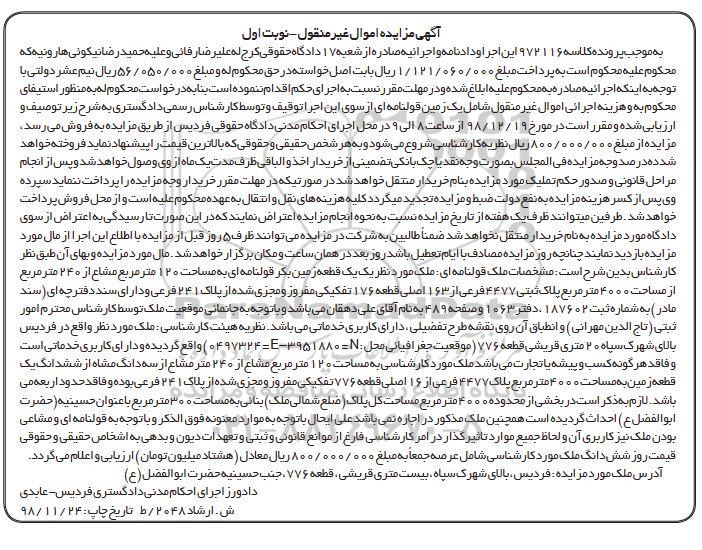 آگهی مزایده اموال غیر منقول – نوبت اول
به موجب پرونده کلاسه ۹۷۲۱۱۶ این اجرا و دادنامه و اجرائیه صادره از شعبه ۱۷ دادگاه حقوقی کرج له علیرضا رفائی و علیه حمیدرضا نیکوئی هارونیه که
محکوم علیه محکوم است به پرداخت مبلغ ۱/۱۲۱/۰۶۰/۰۰۰ ریال بابت اصل خواسته در حق محکوم له و مبلغ ۵۶/۰۵۰/۰۰۰ ریال نیم عشر دولتی با
توجه به اینکه اجرائیه صادره به محکوم علیه ابلاغ شده و در مهلت مقرر نسبت به اجرای حکم اقدام ننموده است بنا به درخواست محکوم له به منظور استیفای
محکوم به و هزینه اجرائی اموال غیر منقول شامل یک زمین قولنامه ای از سوی این اجرا توقیف و توسط کارشناس رسمی دادگستری به شرح زیر توصیف و
ارزیابی شده و مقرر است در مورخ ۹۸/۱۲/۱۹ از ساعت ۸ الی ۹ در محل اجرای احکام مدنی دادگاه حقوقی فردیس از طریق مزایده به فروش می رسد،
مزایده از مبلغ ۸۰۰/۰۰۰/۰۰۰ ریال نظریه کارشناسی شروع می شود و به هر شخص حقیقی و حقوقی که بالاترین قیمت را پیشنهاد نماید فروخته خواهد
شد ده درصد وجه مزایده فی المجلس بصورت وجه نقد یا چک بانکی تضمینی از خریدار اخذ و الباقی ظرف مدت یک ماه از وی وصول خواهد شد و پس از انجام
مراحل قانونی و صدور حکم تملیک مورد مزایده بنام خریدار منتقل خواهد شد در صورتیکه در مهلت مقرر خریدار وجه مزایده را پرداخت ننماید سپرده
وی پس از کسر هزینه مزایده به نفع دولت ضبط و مزایده تجدید میگردد کلیه هزینه های نقل و انتقال به عهده محکوم علیه است و از محل فروش پرداخت
خواهد شد. طرفین میتوانند ظرف یک هفته از تاریخ مزایده نسبت به نحوه انجام مزایده اعتراض نمایند که در این صورت تا رسیدگی به اعتراض از سوی
دادگاه مورد مزایده به نام خریدار منتقل نخواهد شد ضمناً طالبین به شرکت در مزایده می توانند ظرف ۵ روز قبل از مزایده با اطلاع این اجرا از مال مورد
مزایده بازدید نمایند چنانچه روز مزایده مصادف با ایام تعطیل باشد روز بعد در همان ساعت و مکان برگزار خواهد شد. مال مورد مزایده و بهای آن طبق نظر
کارشناس بدین شرح است: مشخصات ملک قولنامه ای: ملک مورد نظر یک یک قطعه زمین بکر قولنامه ای به مساحت ۱۲۰ مترمربع مشاع از ۲۴۰ مترمربع
از مساحت ۴۰۰۰ مترمربع پلاک ثبتی ۴۴۷۷ فرعی از ۱۶۳ اصلی قطعه ۱۷۶ تفکیکی مفروز و مجزی شده از پلاک ۲۴۱ فرعی و دارای سند دفترچه ای (سند
مادر) به شماره ثبت ۱۸۷۶۰۲، دفتر ۱۰۶۳ و صفحه ۴۸۹ به نام آقای علی دهقان می باشد و با توجه به جانمائی موقعیت ملک توسط کارشناس محترم امور
ثبتی (تاج الدین مهرانی) و انطباق آن روی نقشه طرح تفصیلی، دارای کاربری خدماتی می باشد. نظریه هیئت کارشناسی: ملک مورد نظر واقع در فردیس
بالای شهرک سپاه ۲۰ متری قریشی قطعه ۷۷۶ (موقعیت جغرافیائی محل: E=۳۹۵۱۸۸۰=N-۰۴۹۷۳۲۴) واقع گردیده و دارای کاربری خدماتی است
و فاقد هرگونه کسب و پیشه یا تجارت می باشد ملک مورد کارشناسی به مساحت ۱۲۰ مترمربع مشاع از ۲۴۰ متر مشاع از سه دانگ مشاه از ششدانگ یک
قطعه زمین به مساحت ۴۰۰۰ مترمربع پلاک ۴۴۷۷ فرعی از ۱۶ اصلی قطعه ۷۷۶ تفکیکی مفروز و مجزی شده از پلاک ۲۴۱ فرعی بوده و فاقد حدود اربعه می
باشد. لازم به ذکر است در بخشی از محدوده ۴۰۰۰ مترمربع مساحت کل پلاک (ضلع شمالی ملک) بنائی به مساحت ۳۰۰ مترمربع باعنوان حسینیه (حضرت
ابوالفضل ع) احداث گردیده است همچنین ملک مذکور در اجاره نمی باشد علی ایحال با توجه به موارد معنونه فوق الذکر و با توجه به قولنامه ای و مشاعی
بودن ملک نیز کاربری آن و لحاظ جمیع موارد تاثیرگذار در امر کارشناسی فارغ از موانع قانونی و ثبتی و تعهدات دیون و بدهی به اشخاص حقیقی و حقوقی
قیمت روز شش دانگ ملک مورد کارشناسی شامل عرصه جمعاً به مبلغ ۸۰۰/۰۰۰/۰۰۰ ریال معادل (هشتاد میلیون تومان) ارزیابی و اعلام می گردد.
آدرس ملک مورد مزایده: فردیس، بالای شهرک سپاه، بیست متری قریشی، قطعه ۷۷۶، جنب حسینیه حضرت ابوالفضل (ع)
دادورز اجرای احکام مدنی دادگستری فردیس – عابدی
ش. ارشاد ۲۰۴۸/ط تاریخ چاپ: ۹۸/۱۱/۲۴
ParsNamadData
۰۲۱-۸۸۳۴۹۶۷۰-۵